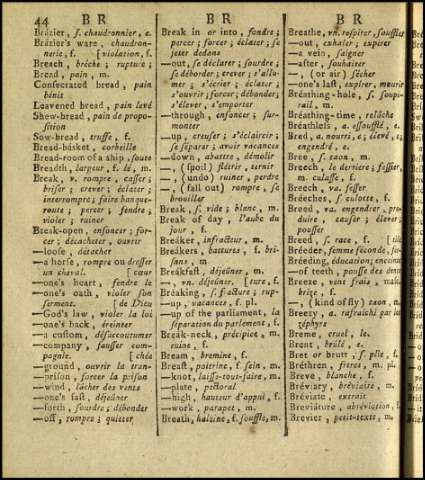 44 B R
Brázier, ſ. chaudronnier, e.
Brázier's ware, chaudronnerie, f. [violation, f.
Breach, brêche; rupture;
Bread, pain, m.
Conſecrated bread, pain
bénit
Leavened bread, pain levé
Shew-bread, pain de propoſition
Sow-bread, truffe, f.
Bread-báſket, corbeille
Bread-room of a ship, ſoute
Breadth, largeur, f. lé, m.
Break, v. rompre, caſſer;
briſer; crever; éclater;
interrompre; faire banqueroute; percer; fendre;
violer; ruiner
Break-open, enfoncer; forcer; décacheter, ouvrir
—looſe, détacher
—a horſe, rompre ou dreſſer
un cheval. [cœur
—one's heart, fendre le
—one's oath, violer ſon
ſerment. [de Dieu
—God's law, violer la loi
—one's back, éreinter
—a cuſtom, déſaccoutumer
—company, fauſſer compagnie. [chée
—ground, ouvrir la tran-
—priſon, forcer la priſon
—wind, lâcher des vents
—one's faſt, déjeûner
—forth, ſourdre; déborder
—off, rompre; quitter
B R
Break in or into, fondre;
percer; forcer; éclater; ſe
jeter dedans
—out, ſe déclarer; ſourdre;
ſe déborder; crever; s'allumer; s'écrier; éclater;
s'ouvrir; forcer; débonder;
s'élever, s'emporter
—through, enfoncer; ſurmonter
—up, creuſer; s'éclaircir;
ſe ſéparer; avoir vacances
—down, abattre, démolir
—, (ſpoil) flétrir, ternir
—, (undo) ruiner, perdre
—, (fall out) rompre, ſe
brouiller
Break, ſ. vide; blanc, m.
Break of day, l'aube du
jour, f.
Breáker, infracteur, m.
Breákers, battures, f. briſans, m
Breákfaſt, déjeûner, m.
—, vn. déjeûner, [ture, f.
Breáking, ſ. fracture; rup-
—up, vacances, f. pl.
—up of the parliament, la
ſéparation du parlement, f.
Break-neck, précipice, m.
ruine, f.
Bream, bremine, f.
Breaſt, poitrine, f. ſein, m.
—knot, laiſſe-tout-faire, m.
—plate, pectoral
—high, hauteur d'appui, f.
—work, parapet, m.
Breath, haleine, f. ſouffle, m.
B R
Breathe, vn. reſpirer, ſouffler
—out, exhaler; expirer
—a vein, ſaigner
—after, ſouhaiter
—, (or air) ſécher
—one's laſt, expirer, mourir
Bréathing-hole, ſ. ſoupirail, m.
Bréathing-time, relâche
Bréathleſs, a. eſſoufflé, e.
Bred, a. nourri, e; élevé, e;
engendré, e.
Bree, ſ. taon, m.
Breech, le derriere; feſſier,
m. culaſſe, f.
Breech, va. feſſer
Breeches, ſ. culotte, f.
Breed, va. engendrer, produire, cauſer; élever;
pouſſer
Breed, ſ. race, f.
Bréeder, femme féconde, f.
Bréeding, éducation;
—of teeth, pouſſe des dents
Breeze, vent frais, m.
briſe, f.
—, (kind of fly) taon, m.
Breezy, a. rafraichi par les
zéphyrs
Breme, cruel, le.
Brent, brûlé, e.
Bret or brutt, ſ. plie, f.
Bréthren, freres, m. pl.
Breve, blanche, f.
Bréviary, bréviaire, m.
Breviate, extrait
Breviáture, abréviation, f.
Brevier, petit-texte, m.